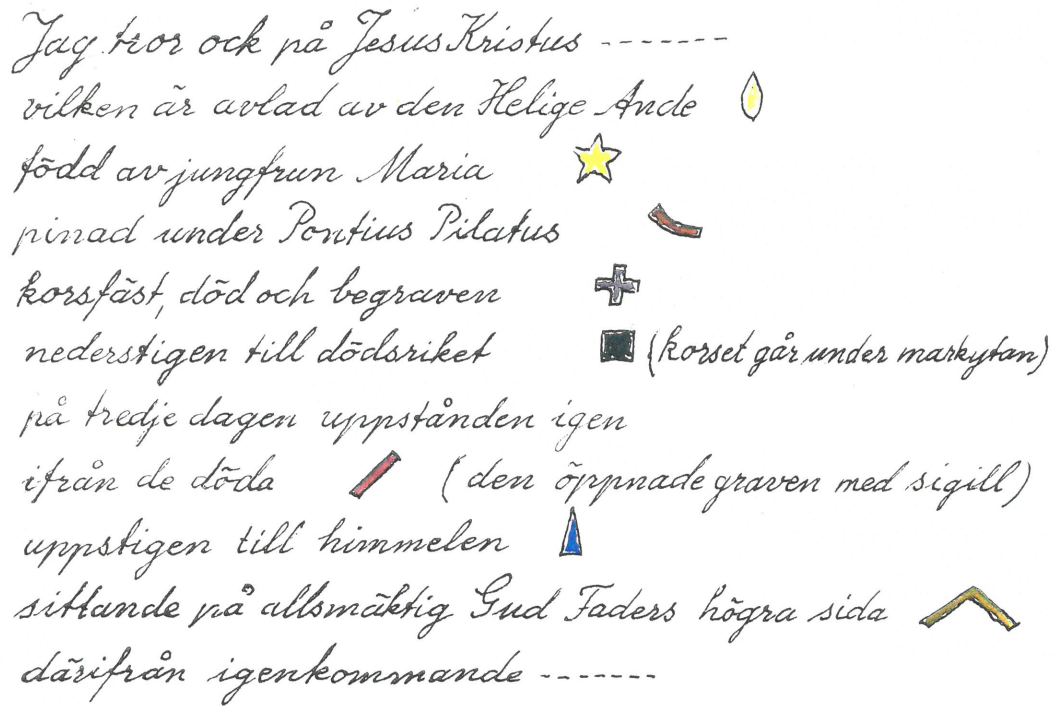 Jag tror ock på Jesus Kristus -------
vilken är avlad av den Helige Ande
född av jungfrun Maria
pinad under Pontius Pilatus
korsfäst, död och begraven
nederstigen till dödsriket (korset går under markytan)
på tredje dagen uppstånden igen
ifrån de döda (den öppnade graven med sigill)
uppstigen till himmelen
sittande på allsmäktig Gud Faders högra sida
därifrån igenkommande -------